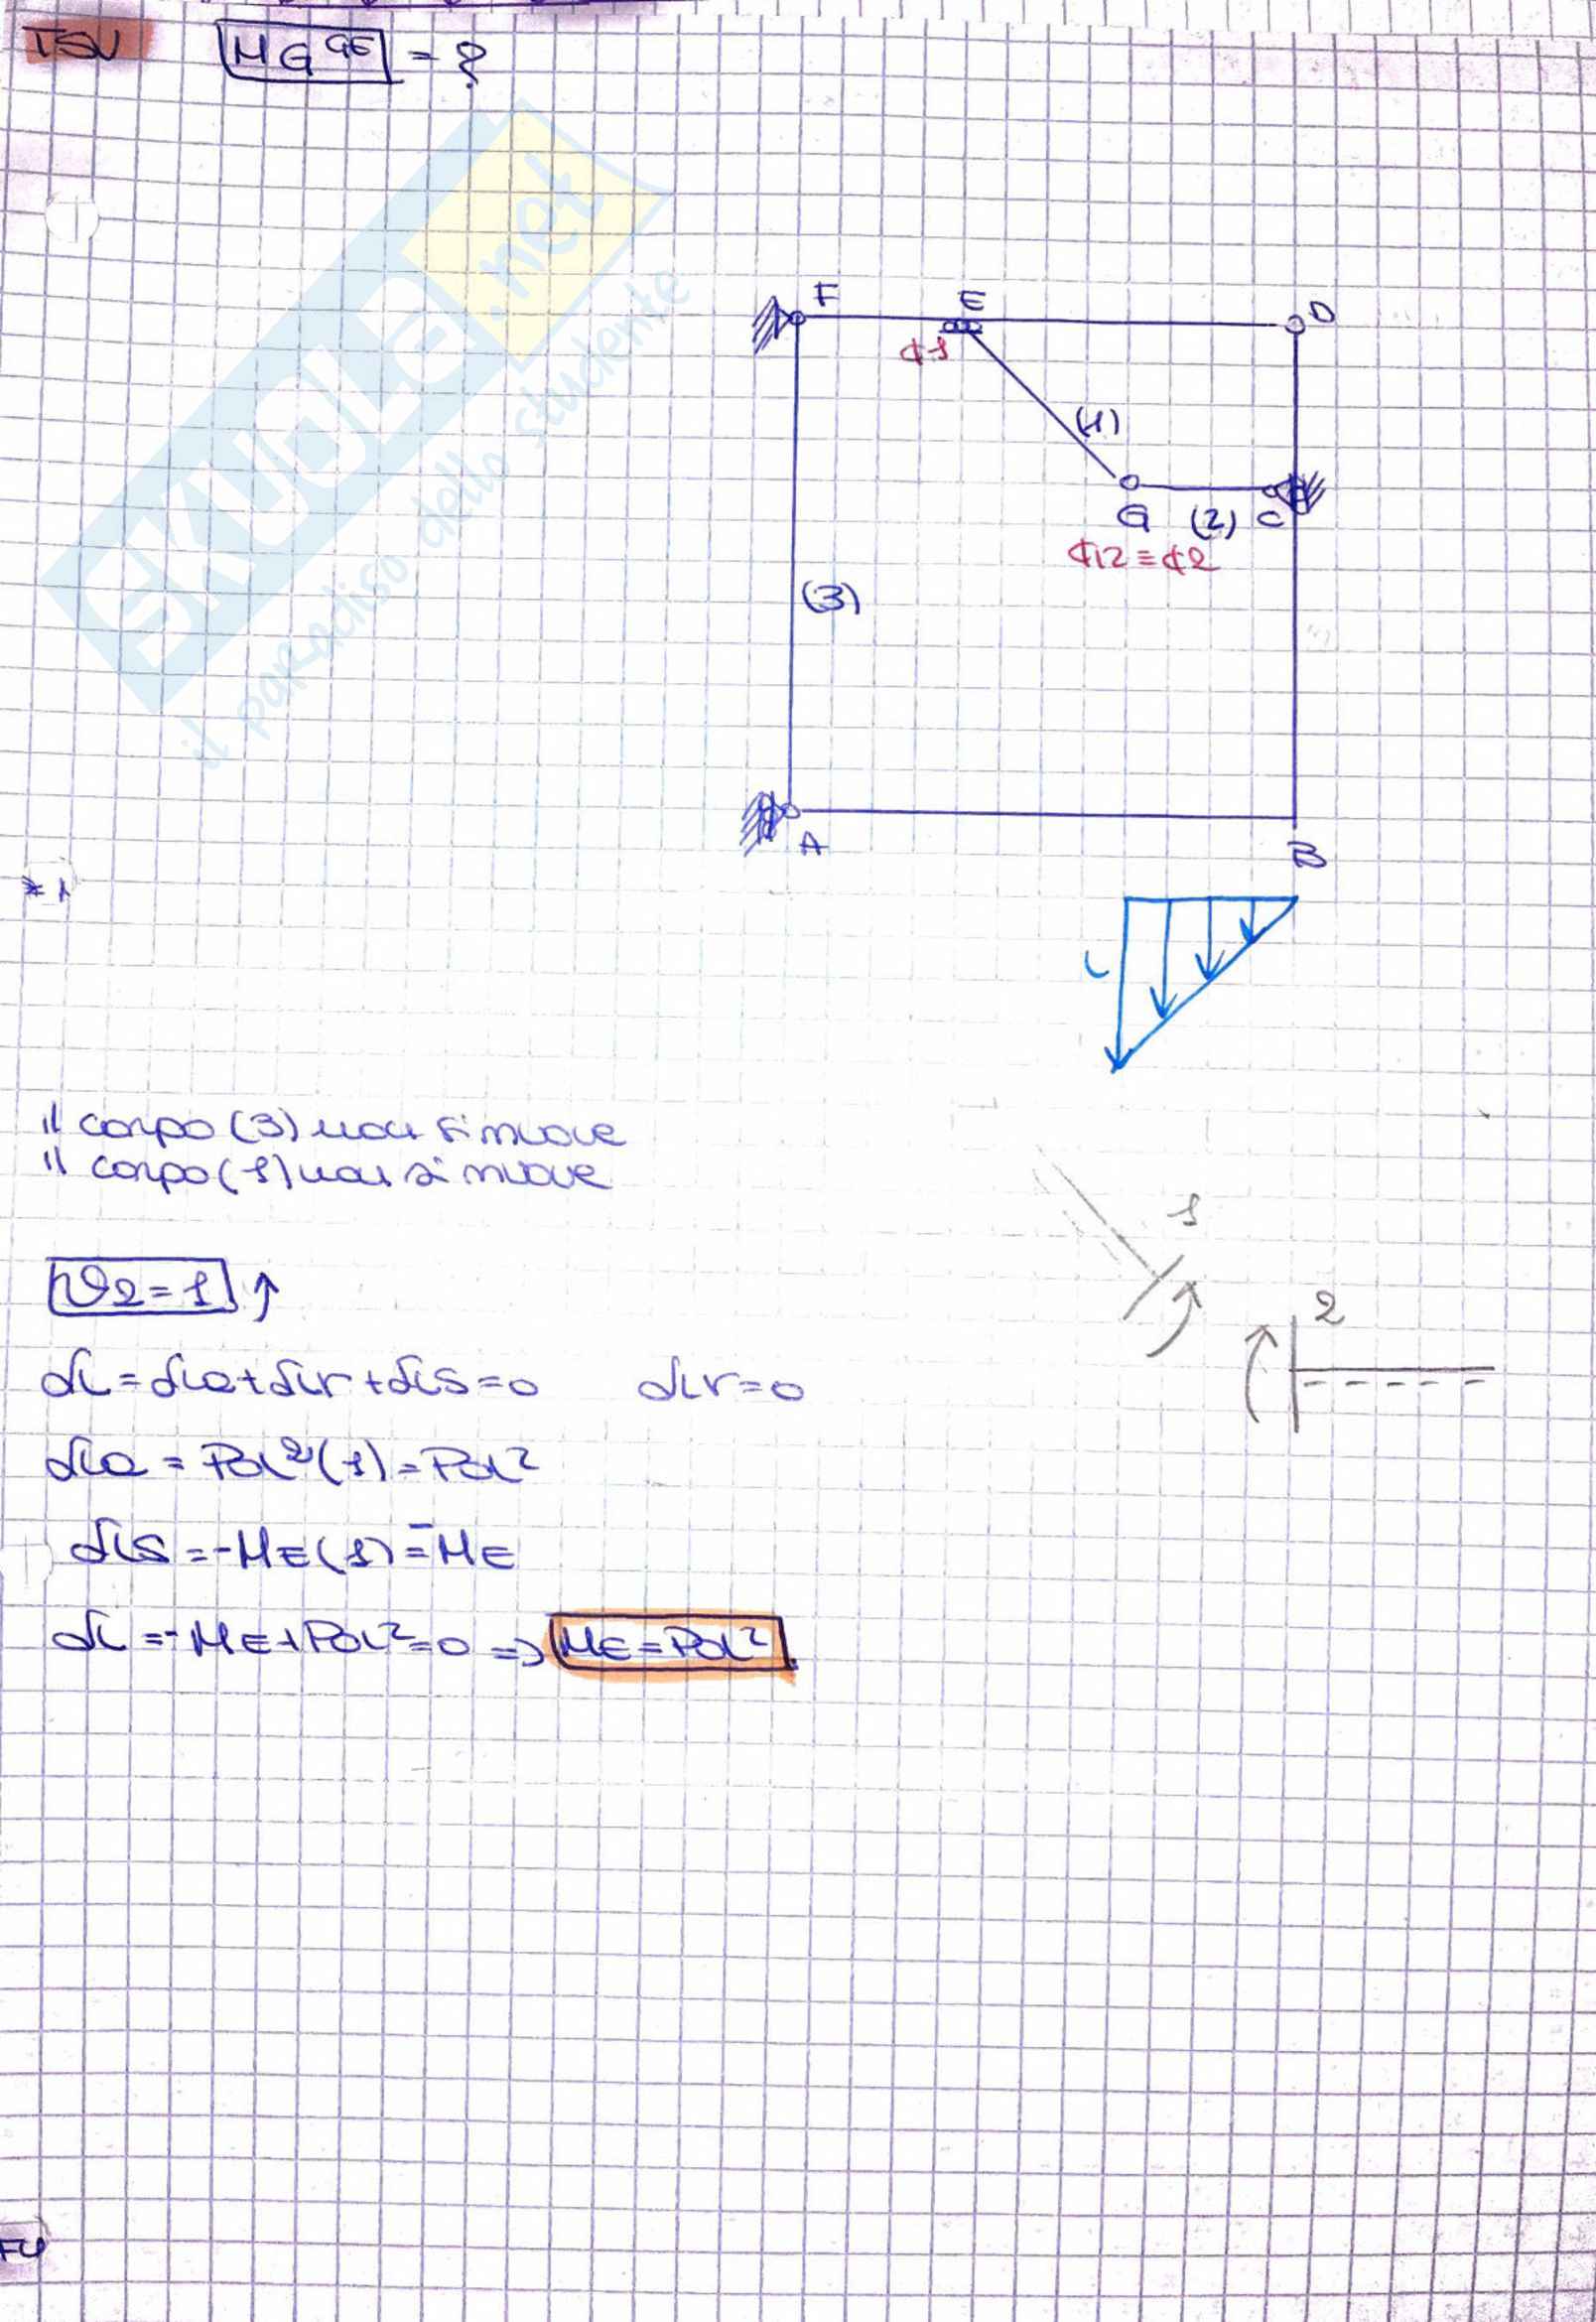 TSV MG GE = ?
SKUOLA.net
il paradiso dello studente
F E D
¢1
(1)
G (2) C
¢12 ≡ ¢2
(3)
A B
* 1
L
il corpo (3) non si muove
il corpo (1) non si muove
1
ϑ2 = 1 ↑
2
δL = δLa + δLr + δLs = 0 δLr = 0
δLa = PoL²(1) = PoL²
δLs = -ME(1) = -ME
δL = -ME + PoL² = 0 => ME = PoL²